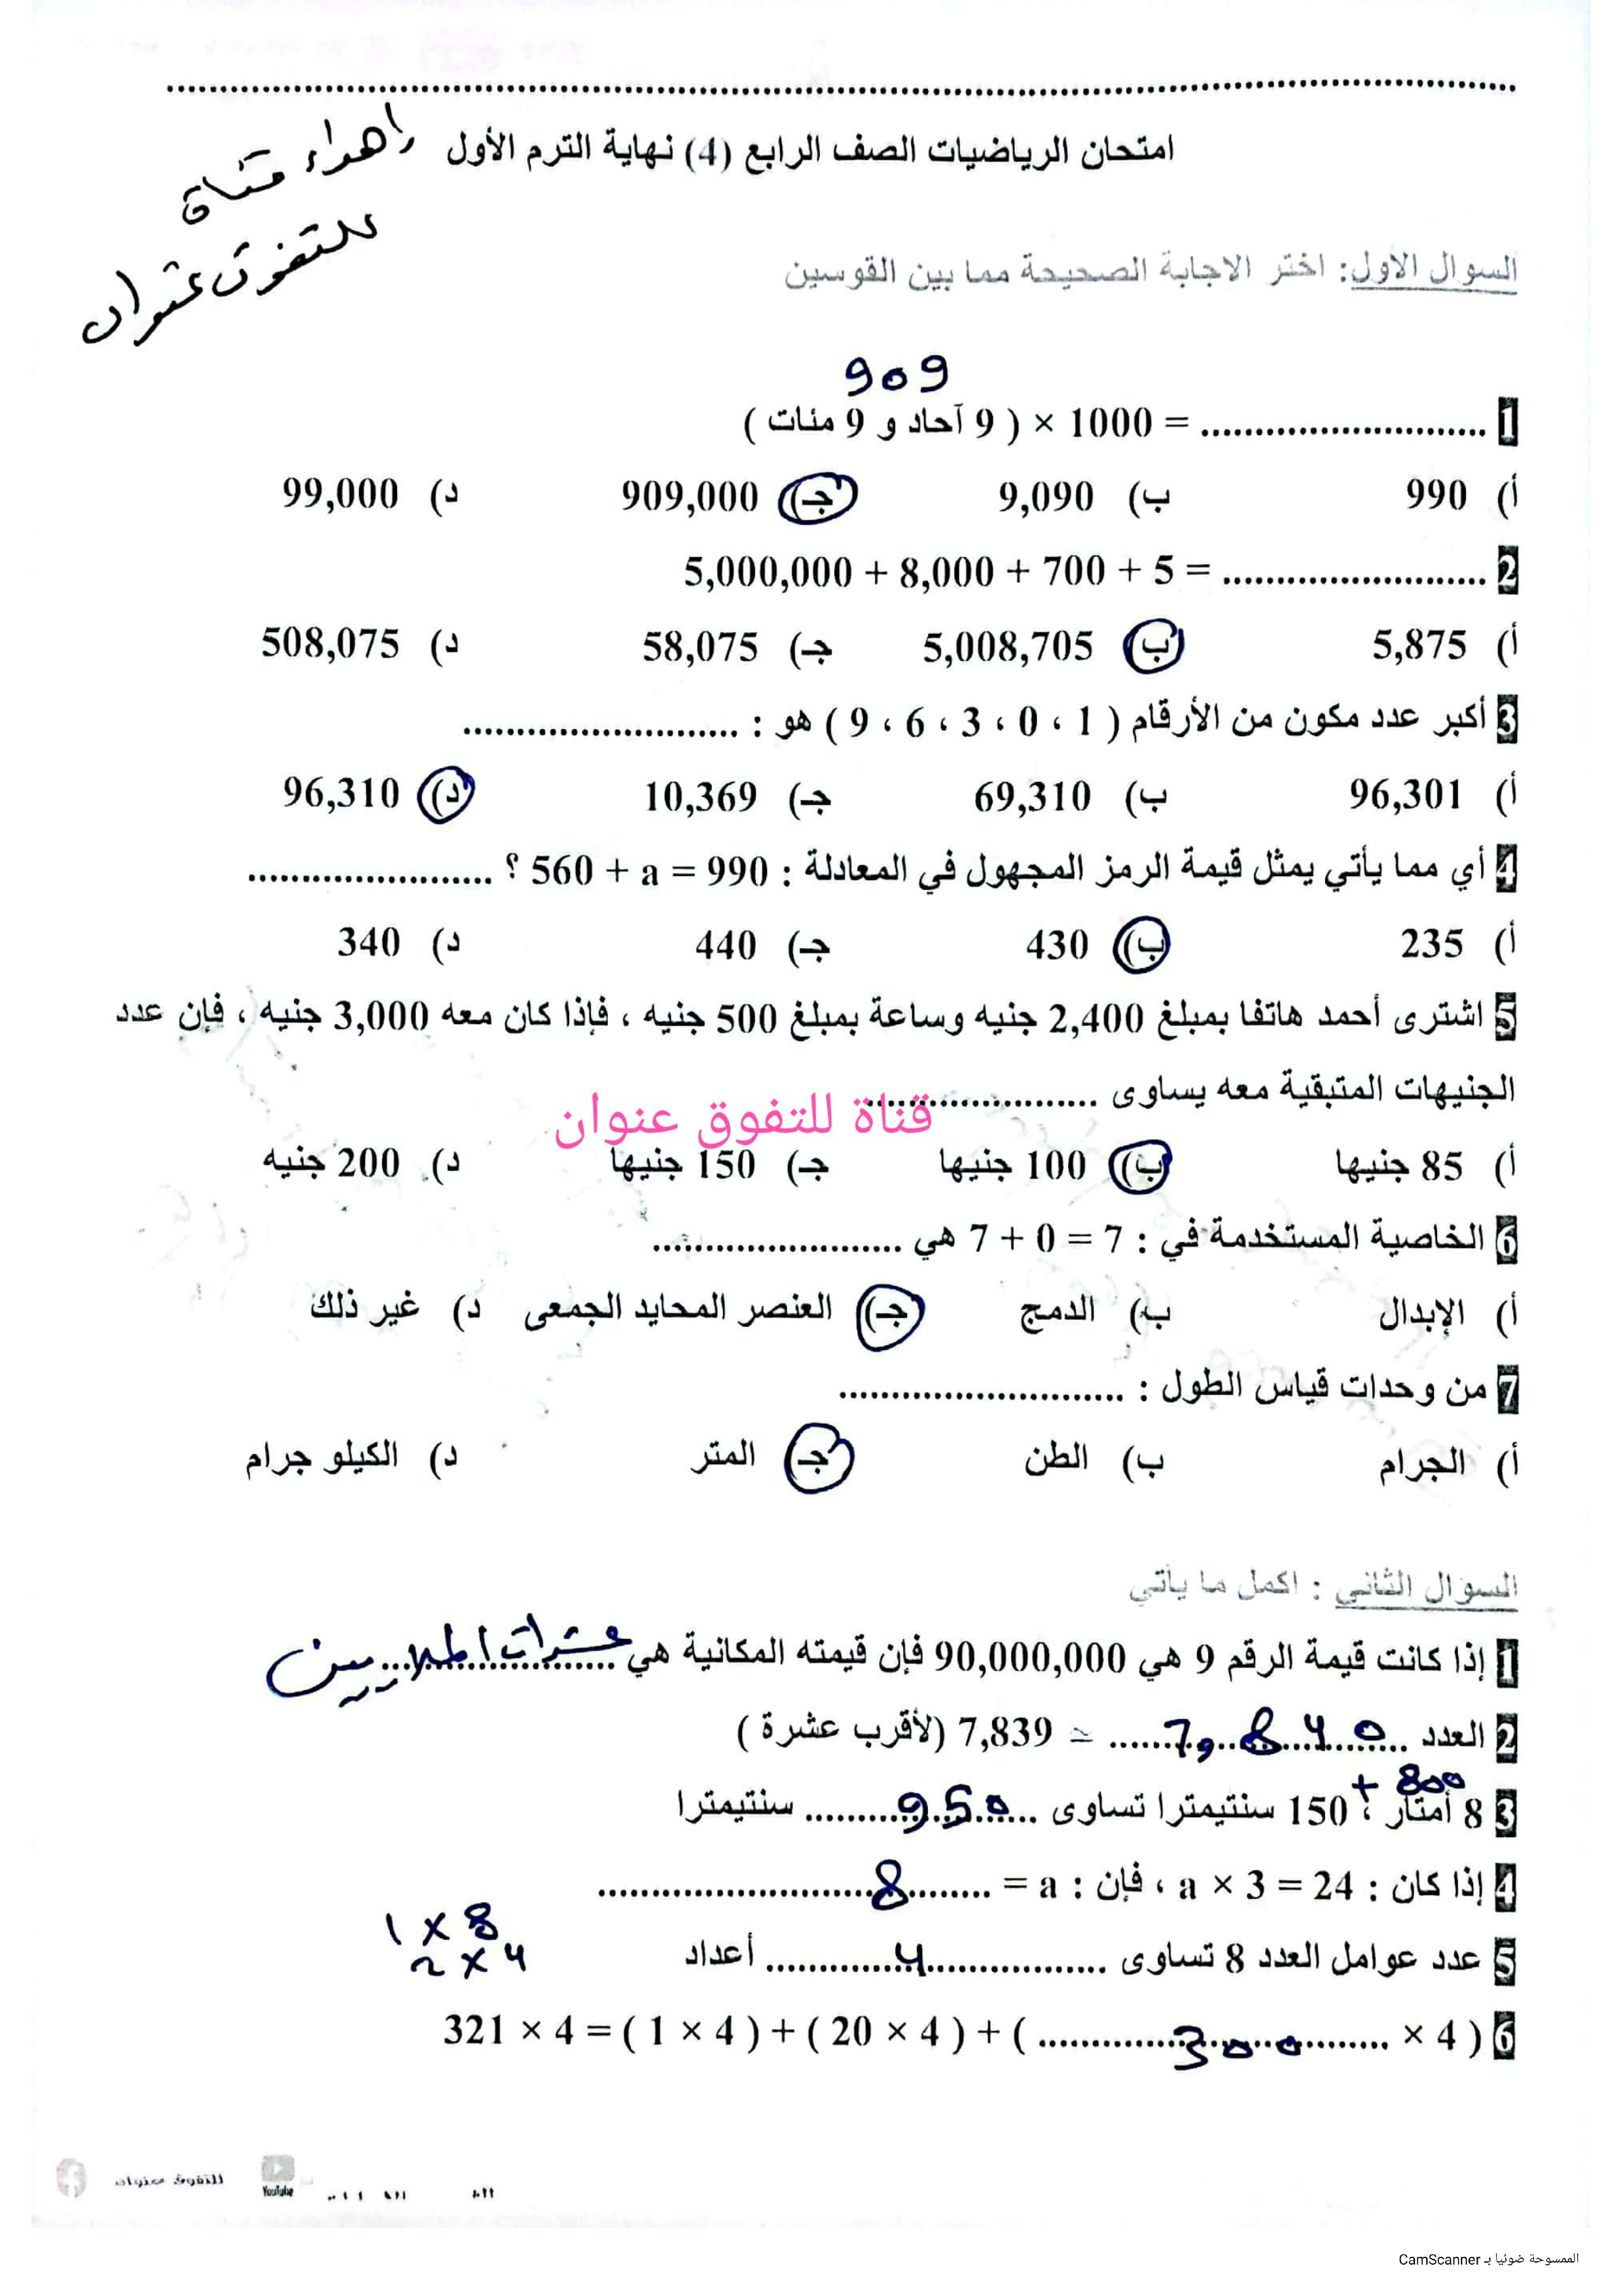 امتحان الرياضيات الصف الرابع (4) نهاية الترم الأول
إهداء قناة
للتفوق عنوان
السوال الاول: اختر الاجابة الصحيحة مما بين القوسين
909
1 .......................... = 1000 × ( 9 آحاد و 9 مئات )
أ) 990 ب) 9,090 جـ) 909,000 د) 99,000
2 5,000,000 + 8,000 + 700 + 5 = ..........................
أ) 5,875 ب) 5,008,705 جـ) 58,075 د) 508,075
3 أكبر عدد مكون من الأرقام ( 1 ، 0 ، 3 ، 6 ، 9 ) هو : ..........................
أ) 96,301 ب) 69,310 جـ) 10,369 د) 96,310
4 أي مما يأتي يمثل قيمة الرمز المجهول في المعادلة : 560 + a = 990 ؟ .......................
أ) 235 ب) 430 جـ) 440 د) 340
5 اشترى أحمد هاتفا بمبلغ 2,400 جنيه وساعة بمبلغ 500 جنيه ، فإذا كان معه 3,000 جنيه ، فإن عدد
الجنيهات المتبقية معه يساوى ......................
قناة للتفوق عنوان
أ) 85 جنيها ب) 100 جنيها جـ) 150 جنيها د) 200 جنيه
6 الخاصية المستخدمة في : 7 + 0 = 7 هي .......................
أ) الإبدال ب) الدمج جـ) العنصر المحايد الجمعى د) غير ذلك
7 من وحدات قياس الطول : ..........................
أ) الجرام ب) الطن جـ) المتر د) الكيلو جرام
السوال الثانى : اكمل ما يأتي
1 إذا كانت قيمة الرقم 9 هي 90,000,000 فإن قيمته المكانية هي عشرات الملايين
2 العدد 7,840 ≃ 7,839 (لأقرب عشرة )
+ 800
3 8 أمتار ، 150 سنتيمترا تساوى 950 سنتيمترا
4 إذا كان : a × 3 = 24 ، فإن : a = 8
1 × 8
5 عدد عوامل العدد 8 تساوى 4 أعداد
2 × 4
6 321 × 4 = ( 1 × 4 ) + ( 20 × 4 ) + ( 300 × 4 )
للتفوق عنوان
YouTube
الممسوحة ضوئيا بـ CamScanner